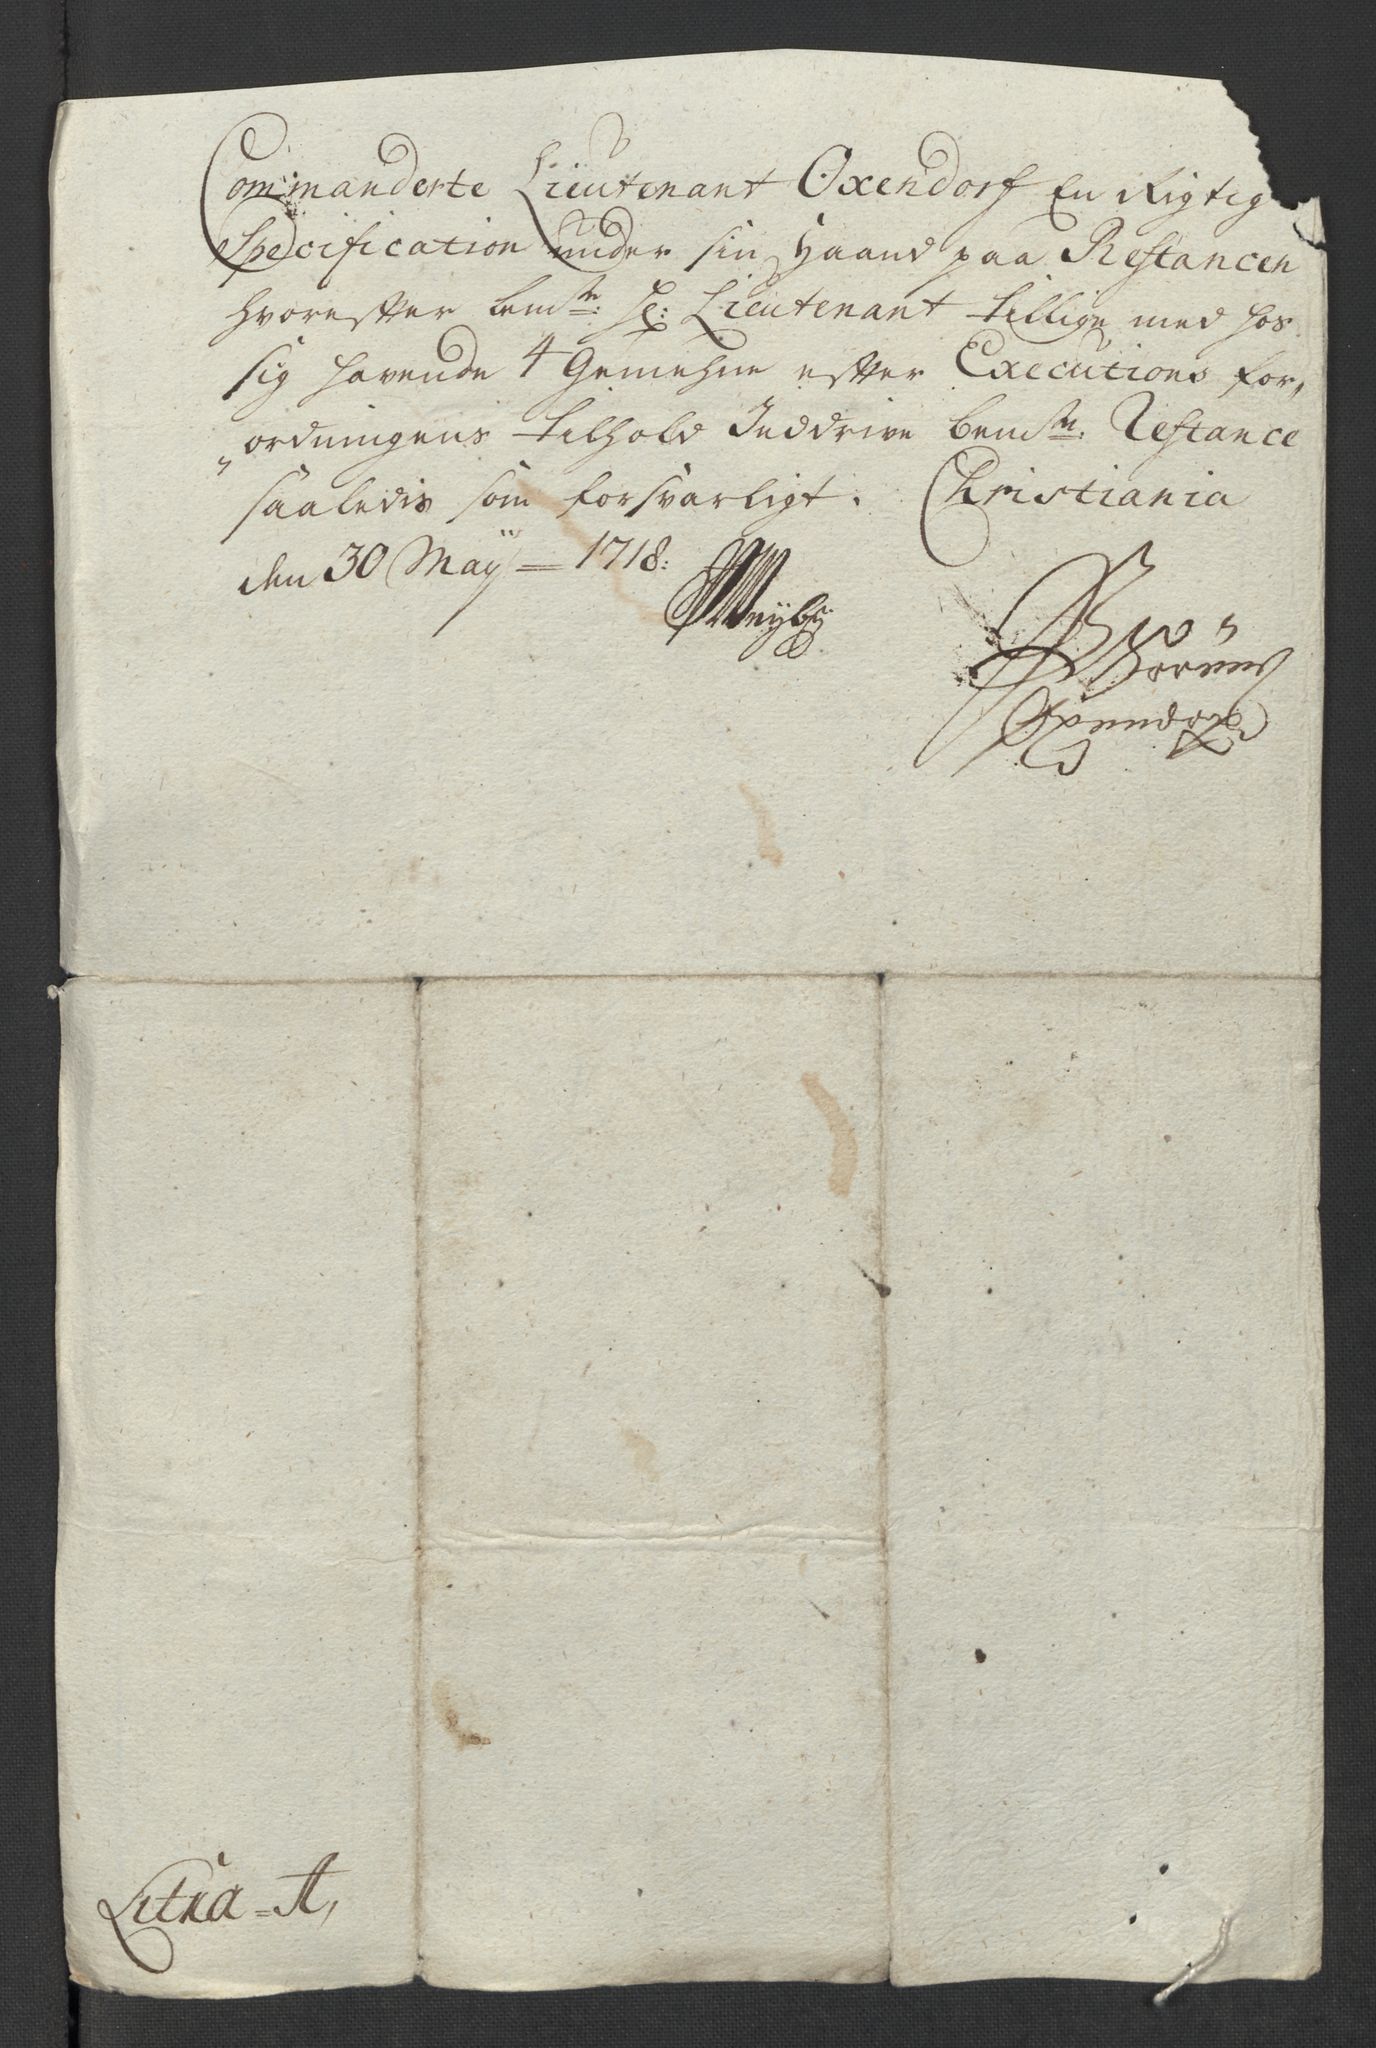 Commanderte Lieutenant Oxendorf En Rigtig
Specification under sin Haand paa Restancen
hvorefter bemte: Hr: Lieutenant tillige med hos
sig havende 4 Gemehne efter Executions for„
„ordningens tilhold Inddrive bemte. Restance
saaledis som forsvarligt. Christiania
den 30 Maÿ = 1718:
Oxendorf
Litra = A,